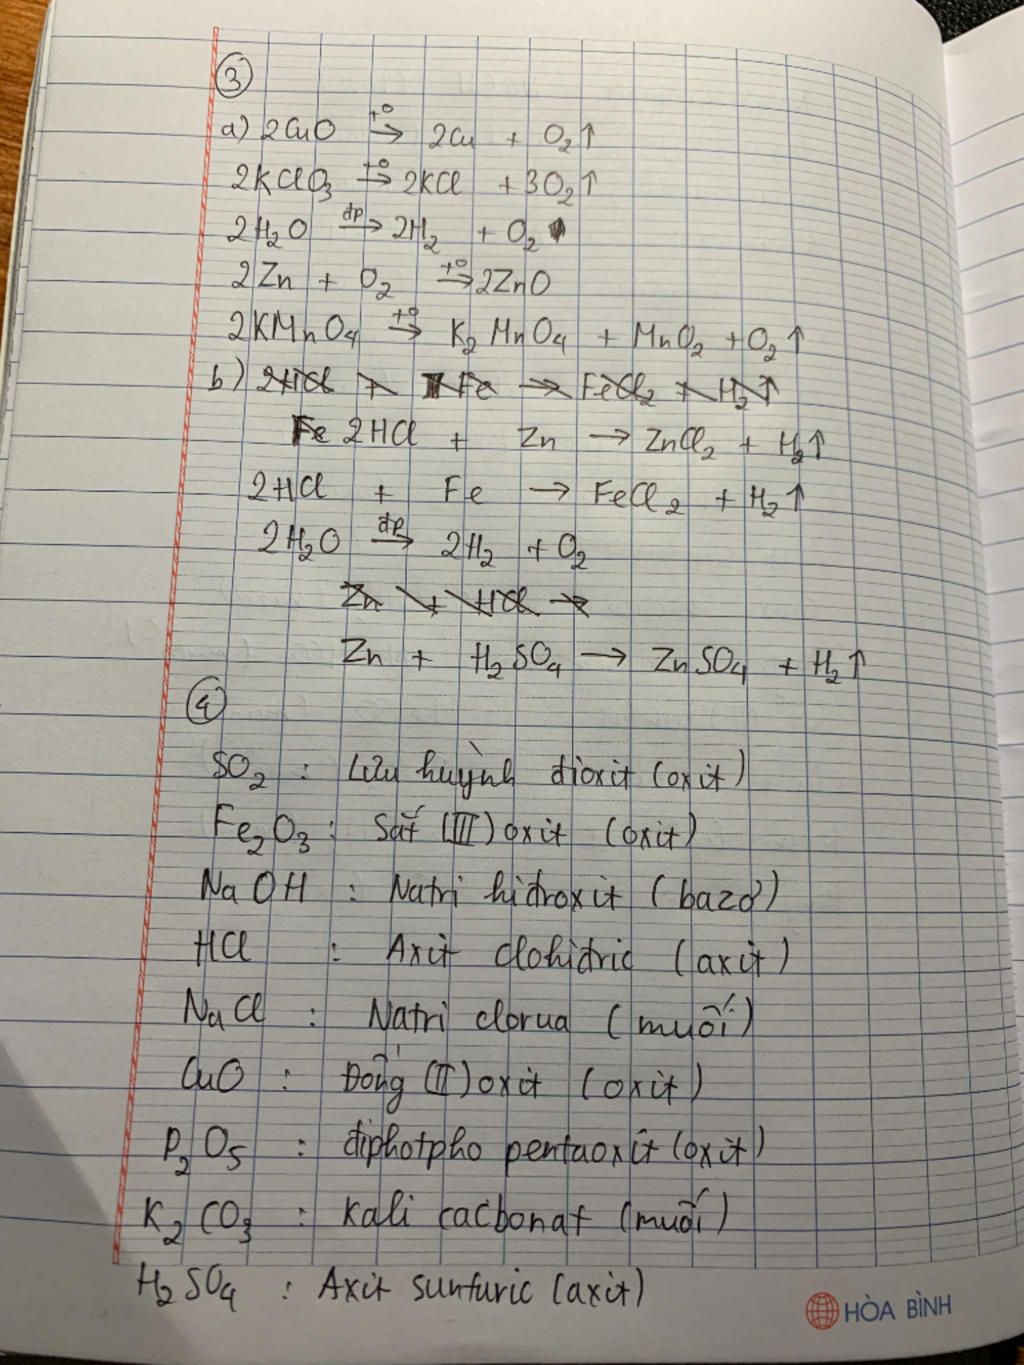 ③
a) 2CuO →(t°) 2Cu + O₂↑
2KClO₃ →(t°) 2KCl + 3O₂↑
2H₂O →(dp) 2H₂ + O₂
2Zn + O₂ →(t°) 2ZnO
2KMnO₄ →(t°) K₂MnO₄ + MnO₂ + O₂↑
b) 2HCl + Fe → FeCl₂ + H₂↑
Fe 2HCl + Zn → ZnCl₂ + H₂↑
2HCl + Fe → FeCl₂ + H₂↑
2H₂O →(dp) 2H₂ + O₂
Zn + HCl →
Zn + H₂SO₄ → ZnSO₄ + H₂↑
④
SO₂ : Lưu huỳnh đioxit (oxit)
Fe₂O₃ : Sắt (III) oxit (oxit)
NaOH : Natri hiđroxit (bazơ)
HCl : Axit clohiđric (axit)
NaCl : Natri clorua (muối)
CuO : Đồng (II) oxit (oxit)
P₂O₅ : điphotpho pentaoxit (oxit)
K₂CO₃ : Kali cacbonat (muối)
H₂SO₄ : Axit sunfuric (axit)
HÒA BÌNH